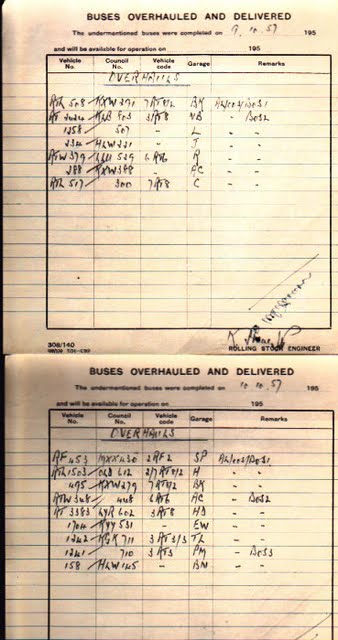 BUSES OVERHAULED AND DELIVERED
The undermentioned buses were completed on 9.10.57 195
and will be available for operation on 195
Vehicle No. Council No. Vehicle code Garage Remarks
OVERHAULS
RTL 508 KXW 291 BK
RT KLB 3RT8 NB - DOS2
1258 507 - L - -
234 HLW 221 - J - -
RTW 379 529 6RT6 R - -
288 KXW 388 - AC - -
RTL 507 300 7RT8 C - -
308/140
ROLLING STOCK ENGINEER
BUSES OVERHAULED AND DELIVERED
The undermentioned buses were completed on 10.10.57 195
and will be available for operation on 195
Vehicle No. Council No. Vehicle code Garage Remarks
OVERHAULS
RF 453 MXX 430 2RF2 SP
RTL 1503 OLD 612 2/7 RT8/2 H - -
495 KXW 279 BK - -
RTW 348 448 6RT6 AC - DOS2
RT 3383 LYR 602 3RT8 HD - -
1704 KYY 531 - EW - -
1242 KGK 711 3RT3/3 TL - -
1241 710 3RT3 PM - DOS3
158 HLW 145 - BN - -